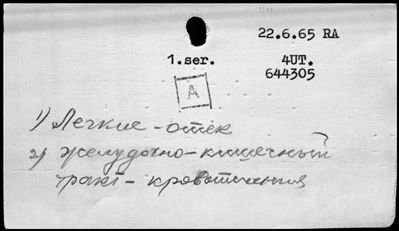 22.6.65 RA
1.ser. 4UT.
644305
A
1) Легкие - отек
2) желудочно-кишечный
тракт - кровотечения